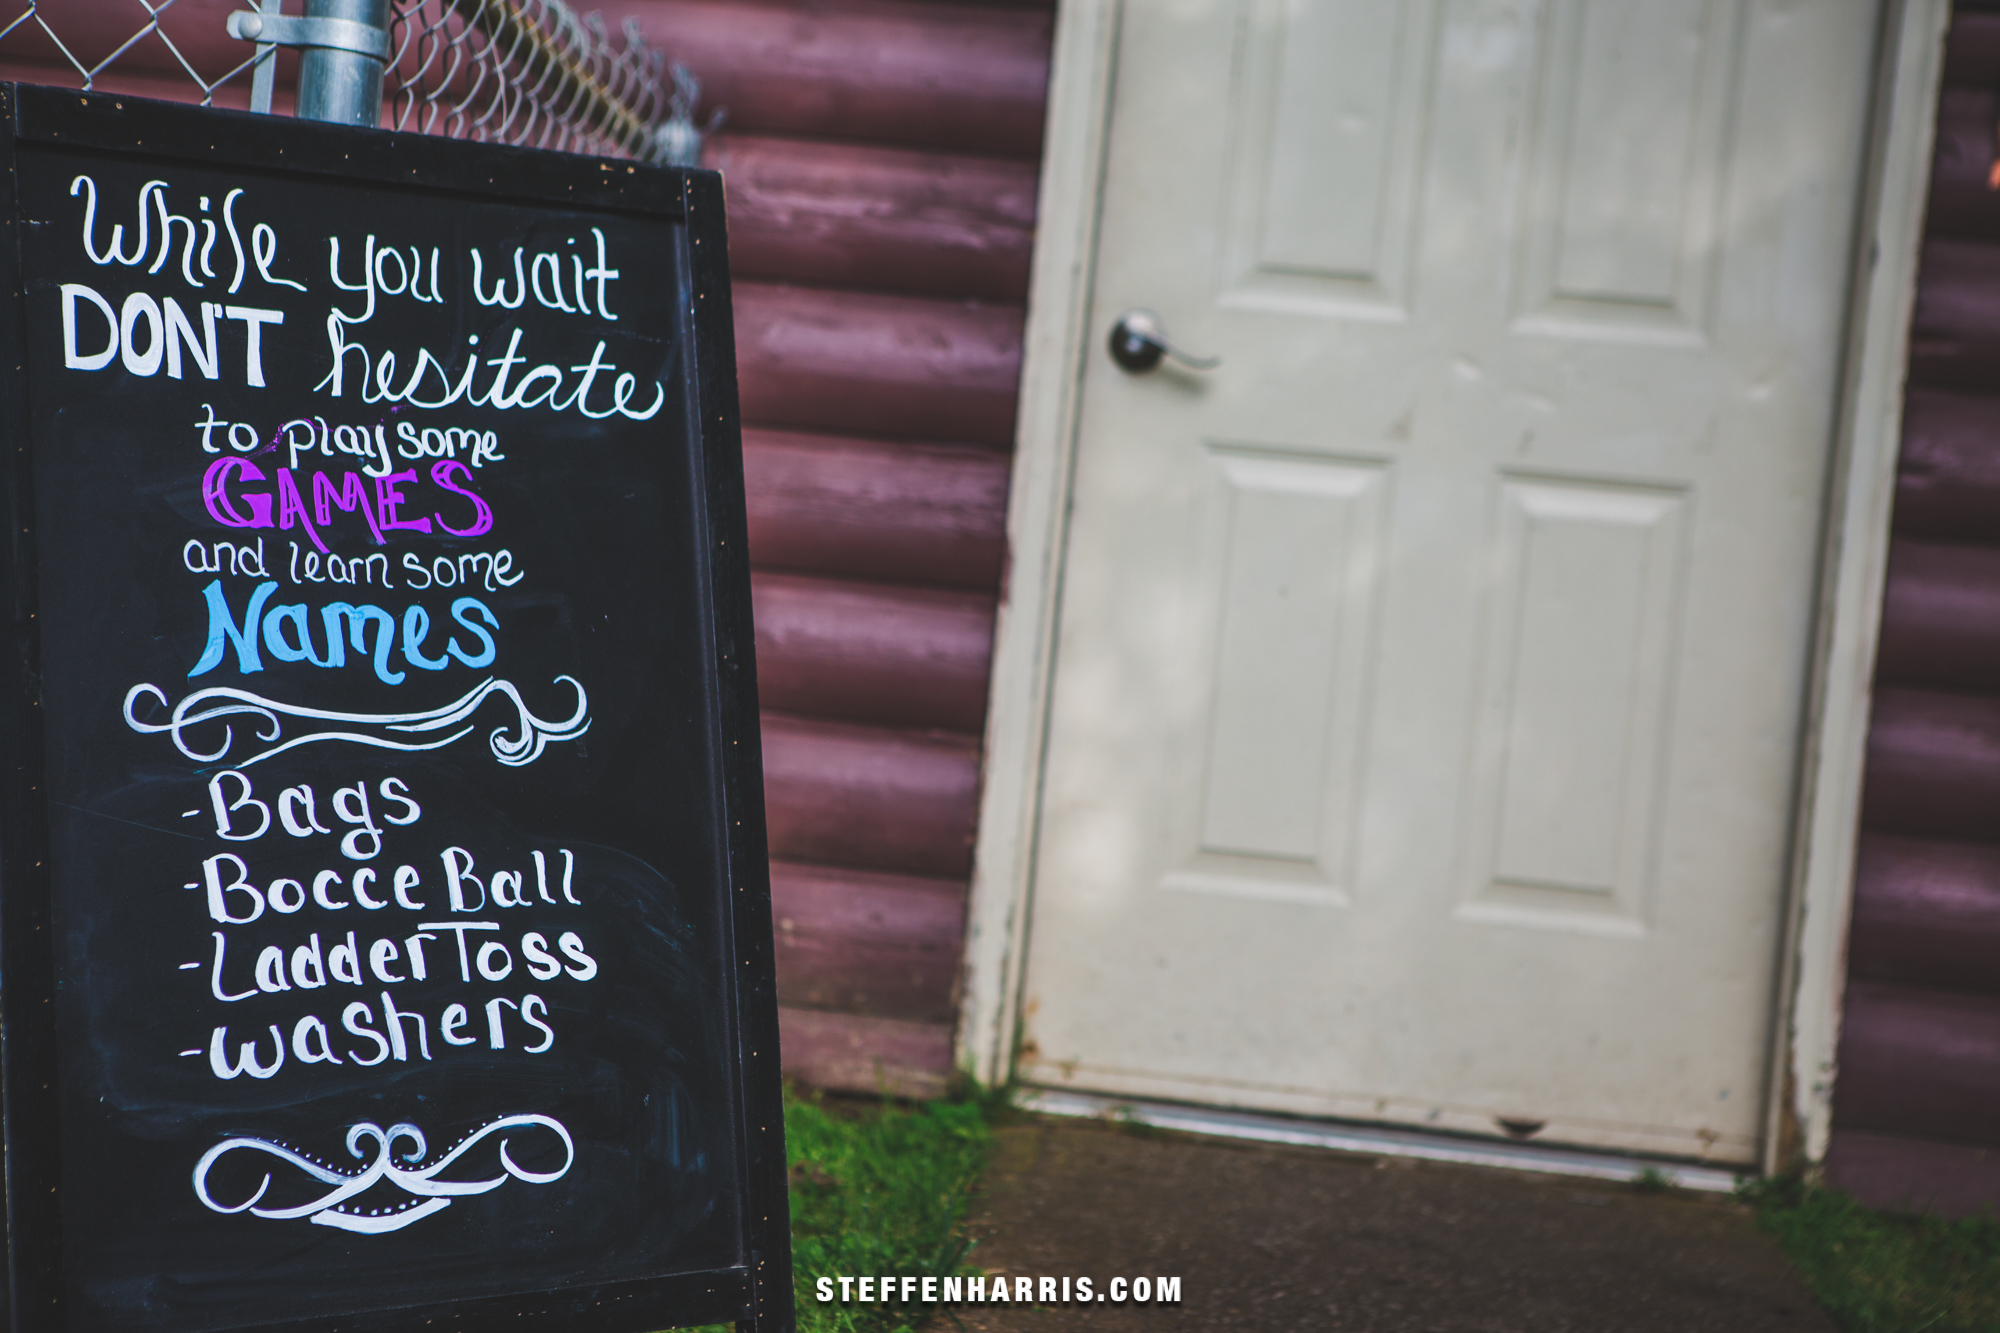 While you wait
DON'T hesitate
to play some
GAMES
and learn some
Names
-Bags
-Bocce Ball
-Ladder Toss
-washers
STEFFENHARRIS.COM